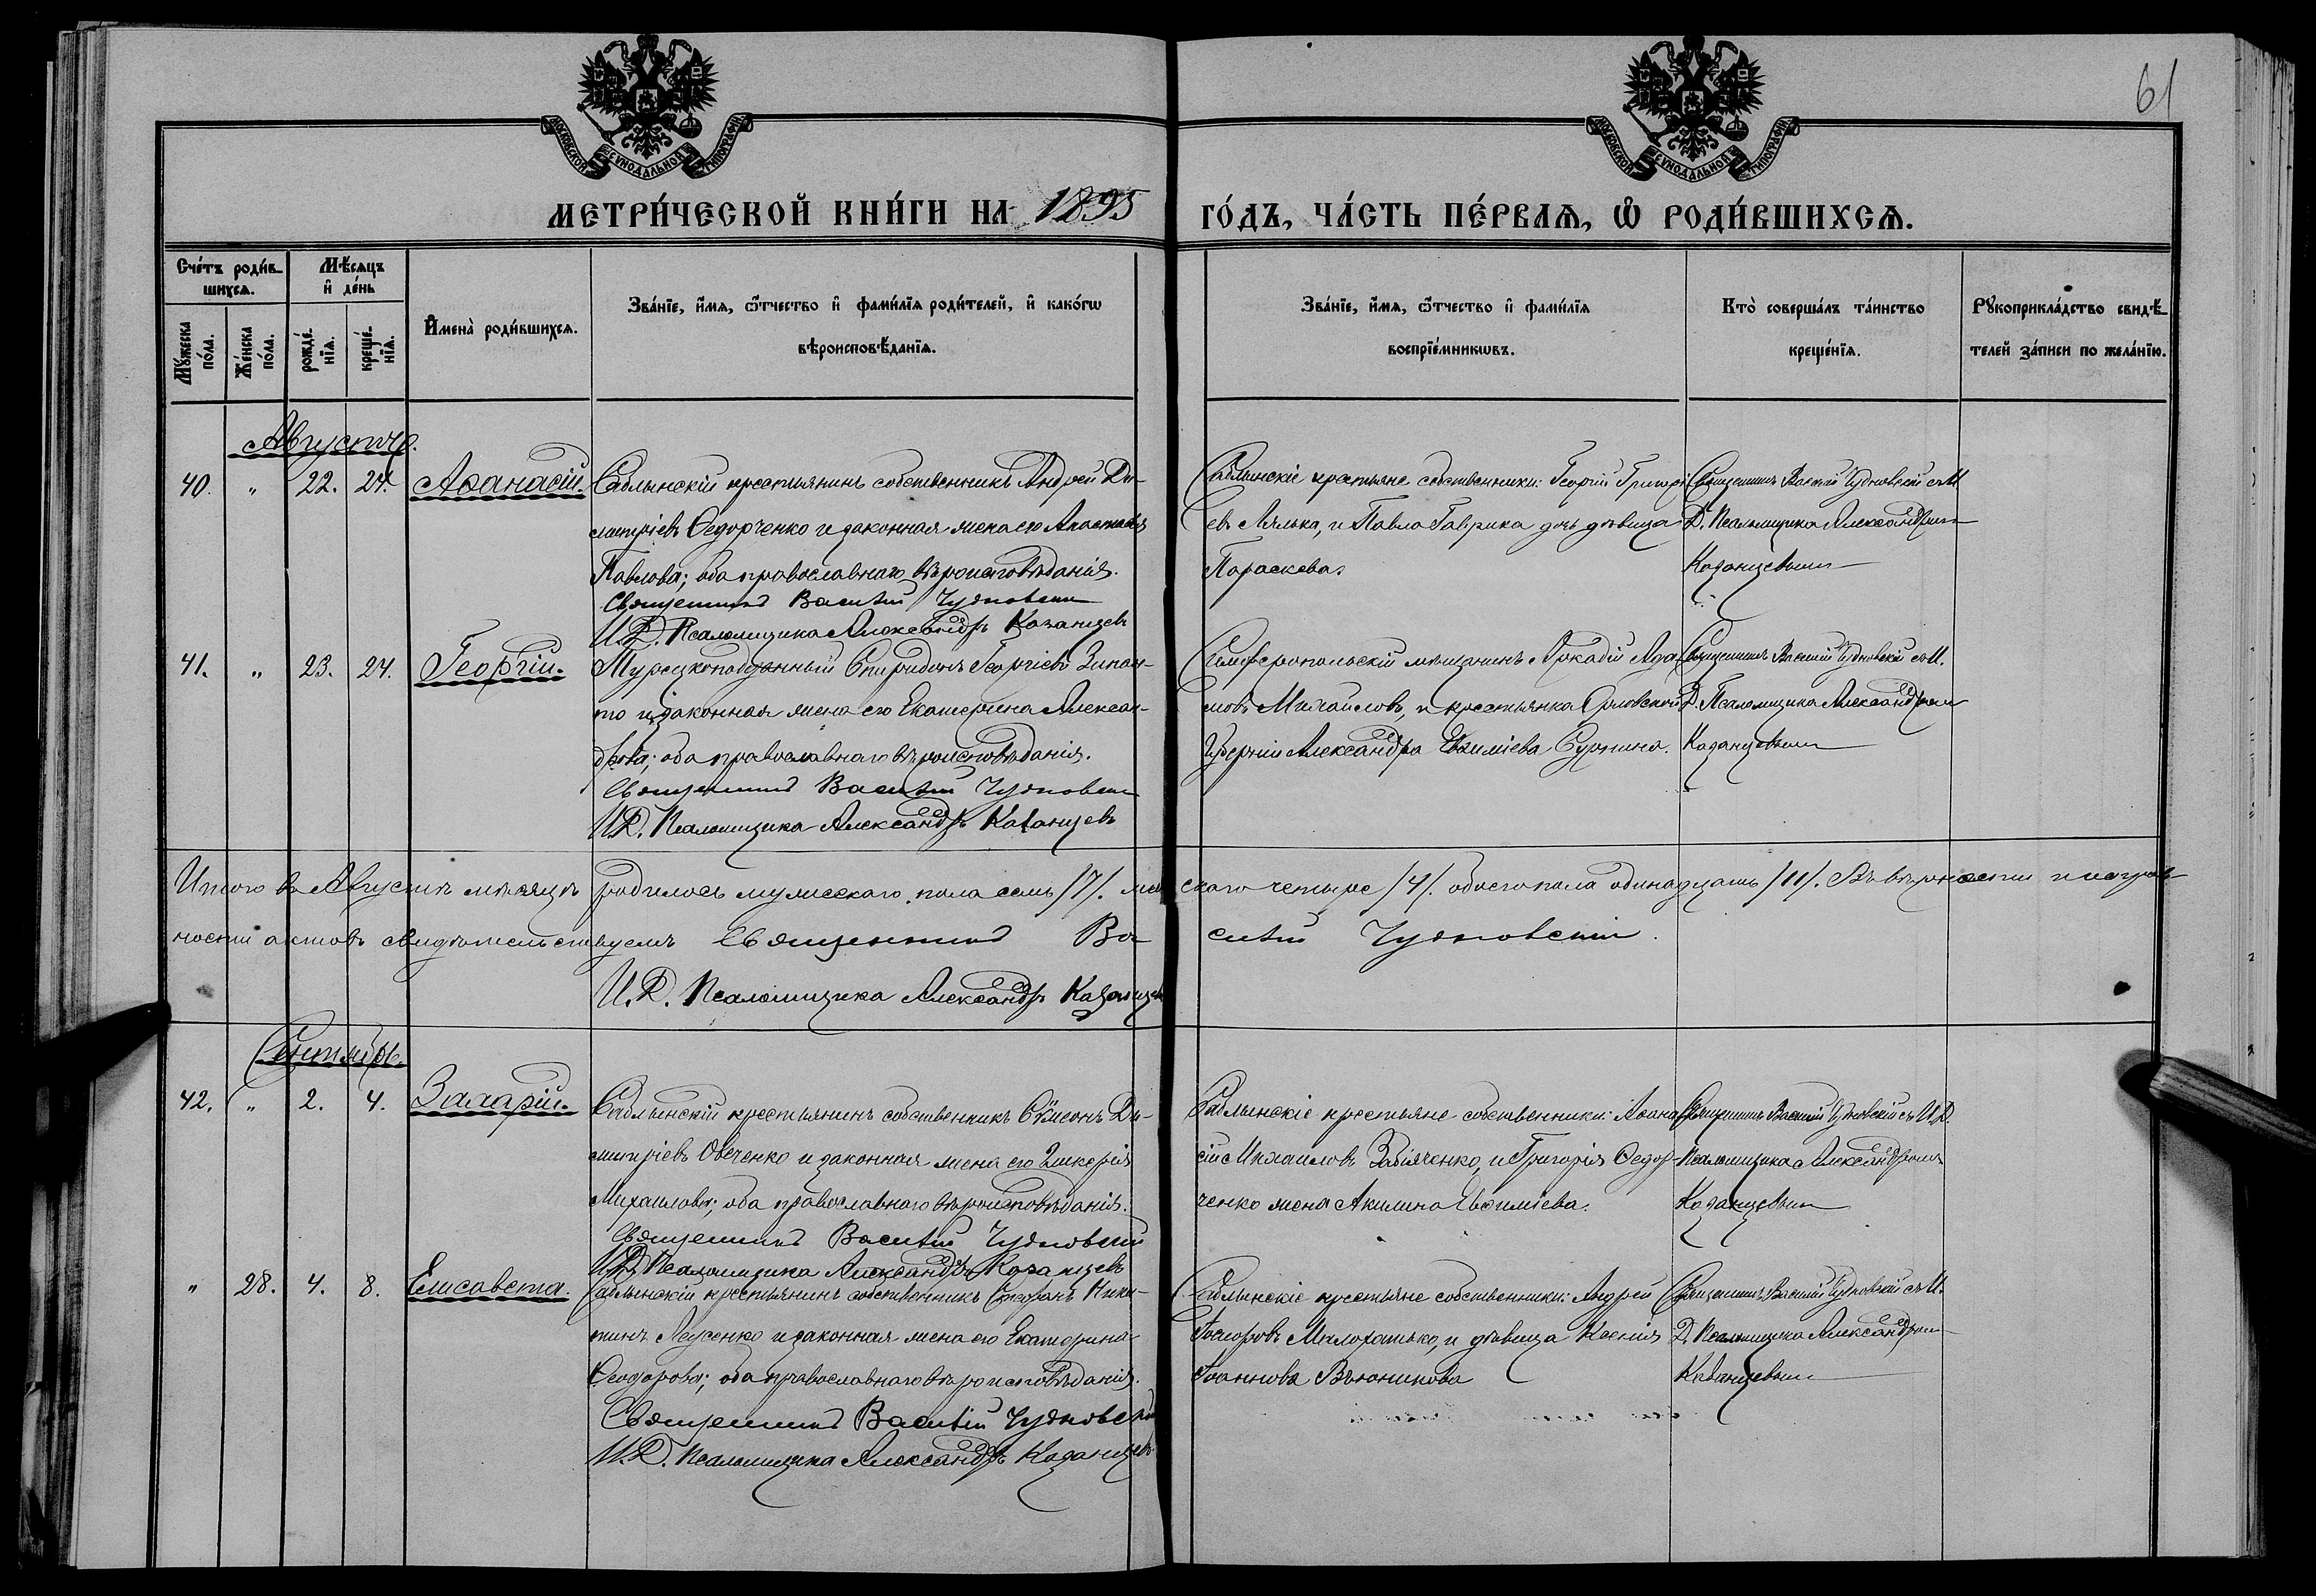 61
МОСКОВСКОЙ СУНОДАЛЬНОЙ ТИПОГРАФІИ
МОСКОВСКОЙ СУНОДАЛЬНОЙ ТИПОГРАФІИ
МЕТРИ́ЧЕСКОЙ КНИ́ГИ НА 1895 ГО́ДЪ, ЧА́СТЬ ПЕ́РВАЯ, Ѡ҆ РОДИ́ВШИХСЯ.
Сче́тъ роди́в-
шихся.
Мѣ́сяцъ
и҆ де́нь
Мꙋ́жеска по́ла.
Же́нска по́ла.
рожде́нїя.
креще́нїя.
И҆мена̀ роди́вшихся.
Зва́нїе, и҆́мя, ѻ҆́тчество и҆ фами́лїя роди́телей, и҆ како́гѡ
вѣроисповѣ́данїя.
Зва́нїе, и҆́мя, ѻ҆́тчество и҆ фами́лїя
воспрїе́мникѡвъ.
Кто̀ соверша́лъ та́инство
креще́нїя.
Рꙋкоприкла́дство свидѣ́-
телей за́писи по жела́нїю.
Августъ.
40. " 22. 24. Аѳанасій.
Саблынскій крестьянинъ собственникъ Андрей Ди-
митріевъ Ѳедорченко и законная жена его Анастасія
Павлова; оба православнаго вѣроисповѣданія.
Священникъ Василій Чудновскій
И.Д. Псаломщика Александръ Казанцевъ
Саблынскіе крестьяне собственники: Георгій Григорі-
евъ Лялька, и Павла Гаврика дочь дѣвица
Параскева.
Священникъ Василій Чудновскій съ И.
Д. Псаломщика Александромъ
Казанцевымъ
41. " 23. 24. Георгій.
Турецкоподданный Спиридонъ Георгіевъ
то и законная жена его Екатерина Алексан-
дрова; оба православнаго вѣроисповѣданія.
Священникъ Василій Чудновскій
И.Д. Псаломщика Александръ Казанцевъ
Симферопольскій мѣщанинъ Аркадій Ада-
мовъ Михайловъ, и крестьянка Орловской
губерніи Александра Евѳиміева
Священникъ Василій Чудновскій съ И.
Д. Псаломщика Александромъ
Казанцевымъ
Итого въ Августѣ мѣсяцѣ родилось мужескаго пола семь /7/. женскаго четыре /4/. обоего пола одинадцать /11/. Въ вѣрности и исправ-
ности актовъ свидѣтельствуемъ Священникъ Василій Чудновскій.
И.Д. Псаломщика Александръ Казанцевъ
Сентябрь.
42. " 2. 4. Захарій.
Саблынскій крестьянинъ собственникъ Сѵмеонъ Ди-
митріевъ Овченко и законная жена его Гликерія
Михайлова; оба православнаго вѣроисповѣданія.
Священникъ Василій Чудновскій
И.Д. Псаломщика Александръ Казанцевъ
Саблынскіе крестьяне собственники: Аѳана-
сій Михайловъ Забіяченко, и Григорія Ѳедор-
ченко жена Акилина Евѳиміева.
Священникъ Василій Чудновскій съ И.Д.
Псаломщика Александромъ
Казанцевымъ
" 28. 4. 8. Елисавета.
Саблынскій крестьянинъ собственникъ Стефанъ Ники-
тинъ Леусенко и законная жена его Екатерина
Ѳеодорова; оба православнаго вѣроисповѣданія.
Священникъ Василій Чудновскій
И.Д. Псаломщика Александръ Казанцевъ
Саблынскіе крестьяне собственники: Андрей
Малохатько, и дѣвица Ксенія
Іоаннова Вьюникова
Священникъ Василій Чудновскій съ И.
Д. Псаломщика Александромъ
Казанцевымъ